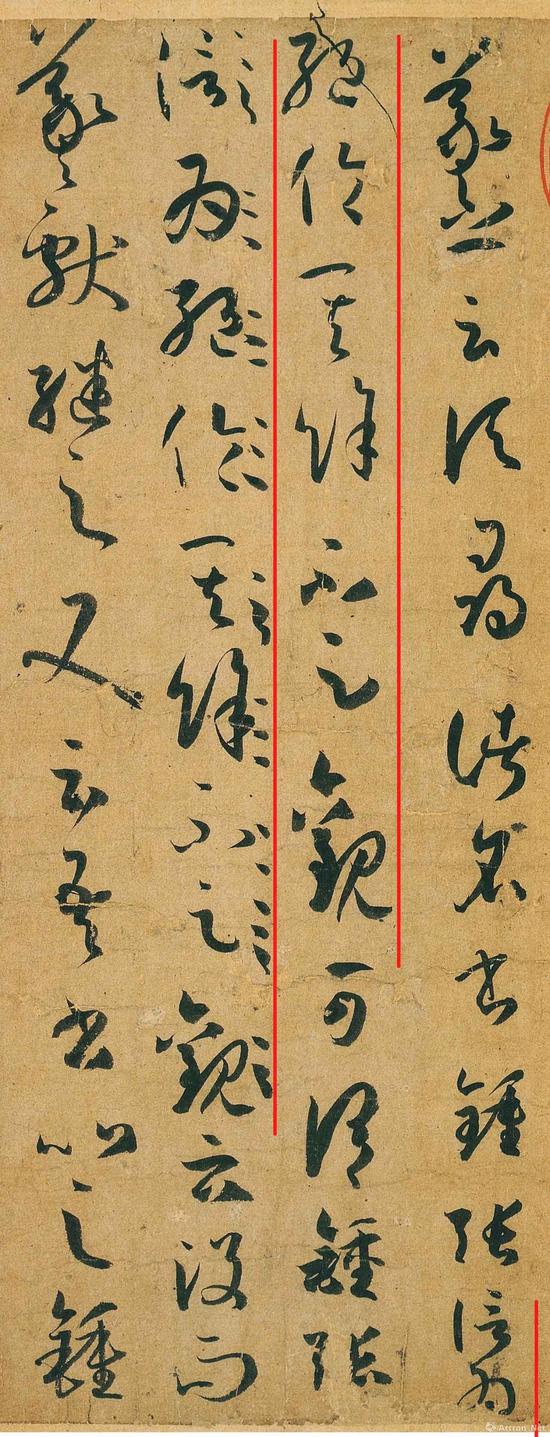 羲之云頃尋諸名書鍾張信為
絕倫其餘不足觀可謂鍾張
信為絕倫其餘不足觀云没而
羲獻繼之又云吾書比之鍾
Artron.Net